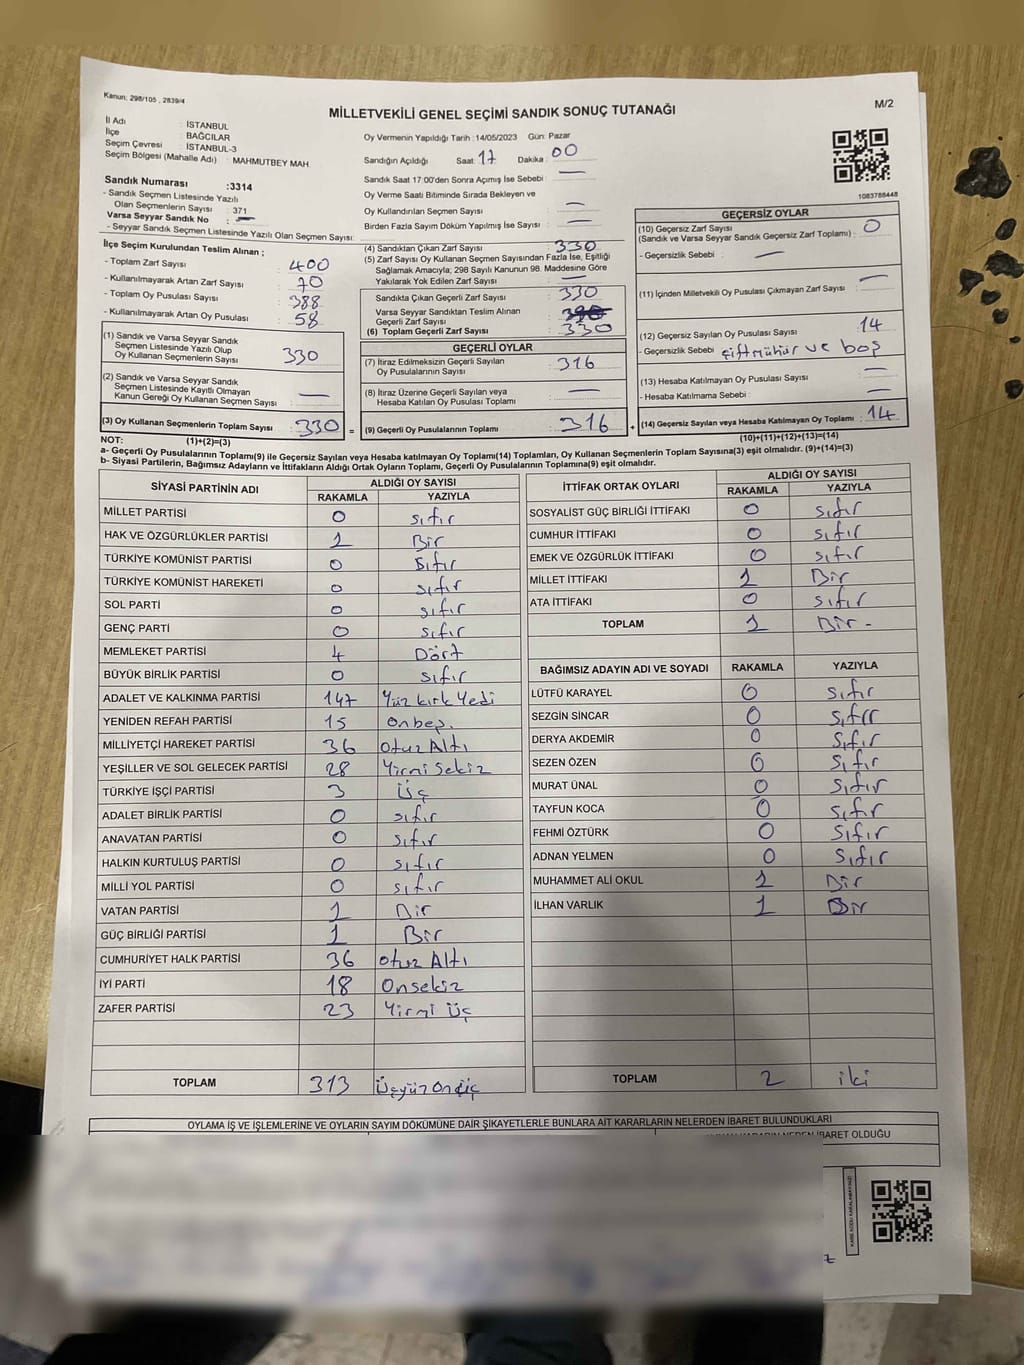 Kanun: 298/105 , 2839/4
MİLLETVEKİLİ GENEL SEÇİMİ SANDIK SONUÇ TUTANAĞI
M/2
İl Adı : İSTANBUL
İlçe : BAĞCILAR
Seçim Çevresi : İSTANBUL-3
Seçim Bölgesi (Mahalle Adı) : MAHMUTBEY MAH.
Sandık Numarası :3314
- Sandık Seçmen Listesinde Yazılı
Olan Seçmenlerin Sayısı : 371
Varsa Seyyar Sandık No : —
- Seyyar Sandık Seçmen Listesinde Yazılı Olan Seçmen Sayısı:
İlçe Seçim Kurulundan Teslim Alınan ;
- Toplam Zarf Sayısı : 400
- Kullanılmayarak Artan Zarf Sayısı : 70
- Toplam Oy Pusulası Sayısı : 388
- Kullanılmayarak Artan Oy Pusulası : 58
(1) Sandık ve Varsa Seyyar Sandık
Seçmen Listesinde Yazılı Olup
Oy Kullanan Seçmenlerin Sayısı : 330
(2) Sandık ve Varsa Seyyar Sandık
Seçmen Listesinde Kayıtlı Olmayan
Kanun Gereği Oy Kullanan Seçmen Sayısı : —
(3) Oy Kullanan Seçmenlerin Toplam Sayısı : 330 =
Oy Vermenin Yapıldığı Tarih : 14/05/2023 Gün: Pazar
Sandığın Açıldığı Saat: 17 Dakika : 00
Sandık Saat 17:00'den Sonra Açımış İse Sebebi : —
Oy Verme Saati Bitiminde Sırada Bekleyen ve
Oy Kullandırılan Seçmen Sayısı : —
Birden Fazla Sayım Döküm Yapılmış İse Sayısı : —
(4) Sandıktan Çıkan Zarf Sayısı : 330
(5) Zarf Sayısı Oy Kullanan Seçmen Sayısından Fazla İse, Eşitliği
Sağlamak Amacıyla; 298 Sayılı Kanunun 98. Maddesine Göre
Yakılarak Yok Edilen Zarf Sayısı : —
Sandıkta Çıkan Geçerli Zarf Sayısı : 330
Varsa Seyyar Sandıktan Teslim Alınan
Geçerli Zarf Sayısı :
(6) Toplam Geçerli Zarf Sayısı : 330
GEÇERLİ OYLAR
(7) İtiraz Edilmeksizin Geçerli Sayılan
Oy Pusulalarının Sayısı : 316
(8) İtiraz Üzerine Geçerli Sayılan veya
Hesaba Katılan Oy Pusulası Toplamı : —
(9) Geçerli Oy Pusulalarının Toplamı : 316 +
1083788448
GEÇERSİZ OYLAR
(10) Geçersiz Zarf Sayısı
(Sandık ve Varsa Seyyar Sandık Geçersiz Zarf Toplamı) : 0
- Geçersizlik Sebebi : —
(11) İçinden Milletvekili Oy Pusulası Çıkmayan Zarf Sayısı : —
(12) Geçersiz Sayılan Oy Pusulası Sayısı : 14
- Geçersizlik Sebebi : çiftmühür ve boş
(13) Hesaba Katılmayan Oy Pusulası Sayısı : —
- Hesaba Katılmama Sebebi : —
(14) Geçersiz Sayılan veya Hesaba Katılmayan Oy Toplamı : 14
(10)+(11)+(12)+(13)=(14)
NOT: (1)+(2)=(3)
a- Geçerli Oy Pusulasının Toplamı(9) ile Geçersiz Sayılan veya Hesaba katılmayan Oy Toplamı(14) Toplamları, Oy Kullanan Seçmenlerin Toplam Sayısına(3) eşit olmalıdır. (9)+(14)=(3)
b- Siyasi Partilerin, Bağımsız Adayların ve İttifakların Aldığı Ortak Oyların Toplamı, Geçerli Oy Pusulalarının Toplamına(9) eşit olmalıdır.
SİYASİ PARTİNİN ADI ALDIĞI OY SAYISI
RAKAMLA YAZIYLA
MİLLET PARTİSİ 0 sıfır
HAK VE ÖZGÜRLÜKLER PARTİSİ 1 Bir
TÜRKİYE KOMÜNİST PARTİSİ 0 sıfır
TÜRKİYE KOMÜNİST HAREKETİ 0 sıfır
SOL PARTİ 0 sıfır
GENÇ PARTİ 0 sıfır
MEMLEKET PARTİSİ 4 Dört
BÜYÜK BİRLİK PARTİSİ 0 sıfır
ADALET VE KALKINMA PARTİSİ 147 Yüz kırk Yedi
YENİDEN REFAH PARTİSİ 15 Onbeş.
MİLLİYETÇİ HAREKET PARTİSİ 36 Otuz Altı
YEŞİLLER VE SOL GELECEK PARTİSİ 28 Yirmi Sekiz
TÜRKİYE İŞÇİ PARTİSİ 3 Üç
ADALET BİRLİK PARTİSİ 0 sıfır
ANAVATAN PARTİSİ 0 sıfır
HALKIN KURTULUŞ PARTİSİ 0 sıfır
MİLLİ YOL PARTİSİ 0 sıfır
VATAN PARTİSİ 1 Bir
GÜÇ BİRLİĞİ PARTİSİ 1 Bir
CUMHURİYET HALK PARTİSİ 36 Otuz Altı
İYİ PARTİ 18 Onsekiz
ZAFER PARTİSİ 23 Yirmi üç
TOPLAM 313 Üçyüz Onüç
İTTİFAK ORTAK OYLARI ALDIĞI OY SAYISI
RAKAMLA YAZIYLA
SOSYALİST GÜÇ BİRLİĞİ İTTİFAKI 0 sıfır
CUMHUR İTTİFAKI 0 sıfır
EMEK VE ÖZGÜRLÜK İTTİFAKI 0 sıfır
MİLLET İTTİFAKI 1 Bir
ATA İTTİFAKI 0 sıfır
TOPLAM 1 Bir -
BAĞIMSIZ ADAYIN ADI VE SOYADI RAKAMLA YAZIYLA
LÜTFÜ KARAYEL 0 sıfır
SEZGİN SİNCAR 0 sıfır
DERYA AKDEMİR 0 sıfır
SEZEN ÖZEN 0 sıfır
MURAT ÜNAL 0 sıfır
TAYFUN KOCA 0 sıfır
FEHMİ ÖZTÜRK 0 sıfır
ADNAN YELMEN 0 sıfır
MUHAMMET ALİ OKUL 1 Bir
İLHAN VARLIK 1 Bir
TOPLAM 2 iki
OYLAMA İŞ VE İŞLEMLERİNE VE OYLARIN SAYIM DÖKÜMÜNE DAİR ŞİKAYETLERLE BUNLARA AİT KARARLARIN NELERDEN İBARET BULUNDUKLARI
İBARET OLDUĞU